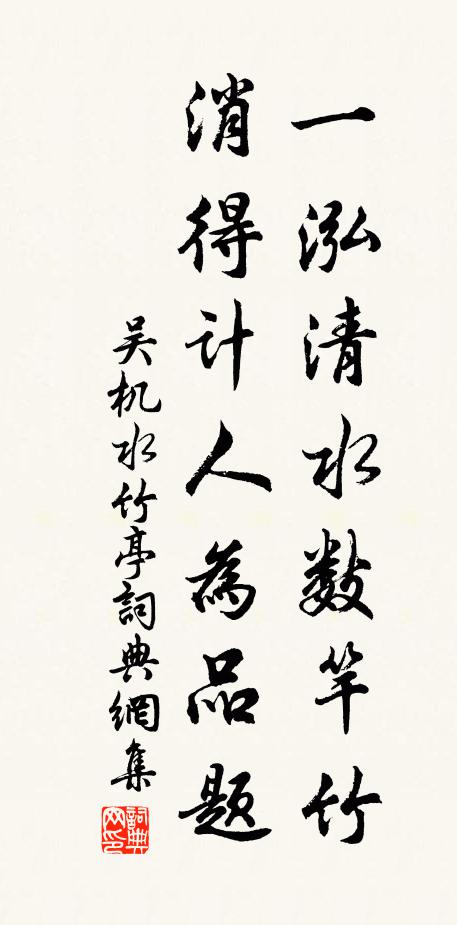 一泓清水数竿竹
消得计人為品题
吴机水竹亭詞典網集
詞典网印